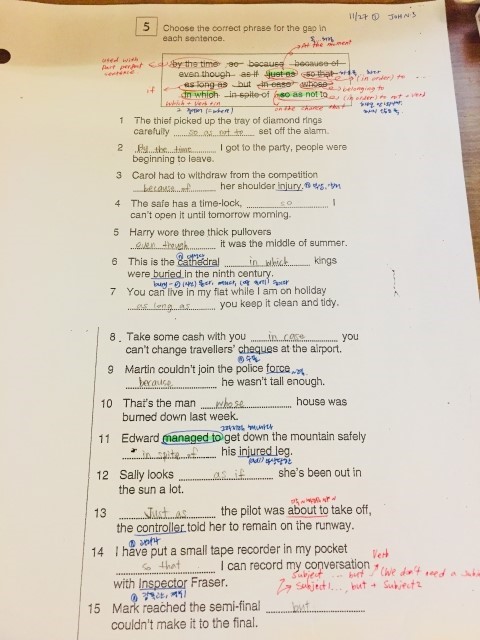 11/27 ① JOHN 3
5 Choose the correct phrase for the gap in
each sentence.
At the moment
used with
past perfect
sentence
by the time so because because of
even though as if just as so that
as long as but in case whose
in which in spite of so as not to
(in order) to
belonging to
(in order) to not + verb
if
on the chance that
1 The thief picked up the tray of diamond rings
carefully so as not to set off the alarm.
2 By the time I got to the party, people were
beginning to leave.
3 Carol had to withdraw from the competition
because of her shoulder injury.
4 The safe has a time-lock, so I
can't open it until tomorrow morning.
5 Harry wore three thick pullovers
even though it was the middle of summer.
6 This is the cathedral in which kings
were buried in the ninth century.
7 You can live in my flat while I am on holiday
as long as you keep it clean and tidy.
8 Take some cash with you in case you
can't change travellers' cheques at the airport.
9 Martin couldn't join the police force
because he wasn't tall enough.
10 That's the man whose house was
burned down last week.
11 Edward managed to get down the mountain safely
in spite of his injured leg.
12 Sally looks as if she's been out in
the sun a lot.
13 Just as the pilot was about to take off,
the controller told her to remain on the runway.
14 I have put a small tape recorder in my pocket
so that I can record my conversation
with Inspector Fraser.
Verb
Subject ... but (We don't need a
Subject 1..., but + Subject 2
15 Mark reached the semi-final but
couldn't make it to the final.